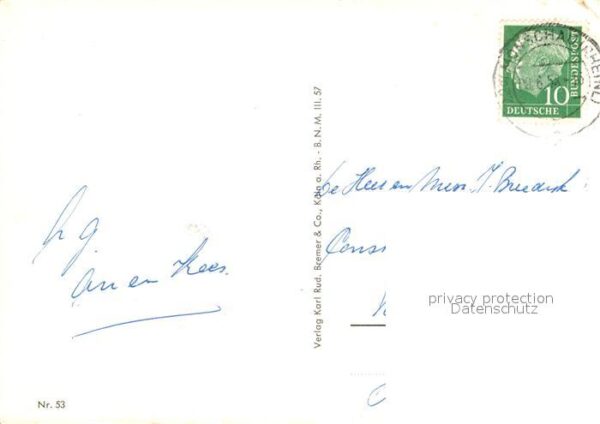 h g.
An en Kees.
Nr. 53
Verlag Karl Rud. Bremer & Co., Köln a. Rh. - B. N. M. III. 57
DEUTSCHE
BUNDESPOST
10
de Heer en Mevr J. Breederk
Cons
privacy protection
Datenschutz